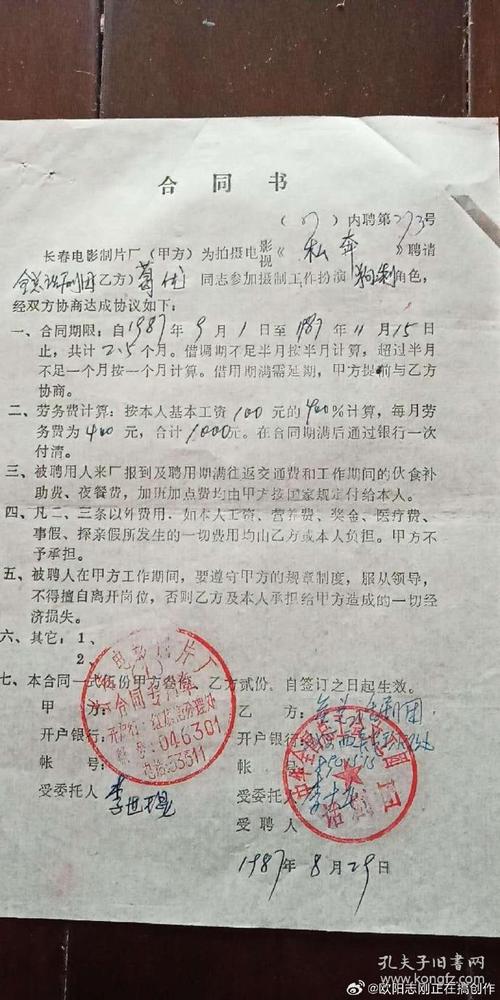 合同书
(87)内聘第273号
长春电影制片厂(甲方)为拍摄电影视《私奔》聘请
全总话剧团乙方)葛优同志参加摄制工作扮演角色,
经双方协商达成协议如下:
一、合同期限:自1987年9月1日至1987年11月15日
止,共计2.5个月。借调期不足半月按半月计算,超过半月
不足一个月按一个月计算。借用期满需延期,甲方提前与乙方
协商。
二、劳务费计算:按本人基本工资100元的400%计算,每月劳
务费为400元,合计1000元。在合同期满后通过银行一次
付清。
三、被聘用人来厂报到及聘用期满往返交通费和工作期间的伙食补
助费、夜餐费,加班加点费均由甲方按国家规定付给本人。
四、凡二、三条以外费用,如本人工资、营养费、奖金、医疗费、
事假、探亲假所发生的一切费用均由乙方或本人负担。甲方不
予承担。
五、被聘人在甲方工作期间,要遵守甲方的规章制度,服从领导,
不得擅自离开岗位,否则乙方及本人承担给甲方造成的一切经
济损失。
六、其它:1、
2、
七、本合同一式伍份甲方叁份,乙方贰份,自签订之日起生效。
甲方: 乙方:全总话剧团
开户银行: 开户银行:
帐号: 帐号:
受委托人 受委托人
受聘人
电影制片厂
合同专用章
046301
电话:53311
话剧团
1987年8月29日
孔夫子旧书网
@欧阳志刚正在搞创作